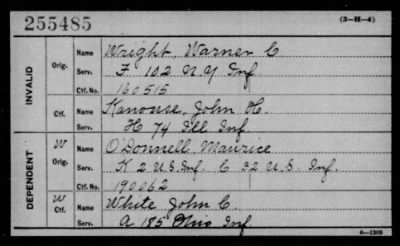 255485 (3-H-4)
INVALID Orig. Name Wright, Warner C
Serv. F 102 N.Y Inf
Ctf. No. 160515
Ctf. Name Kanouse, John H.
Serv. H 74 Ill Inf
DEPENDENT W Orig. Name O'Donnell Maurice
Serv. K 2 U.S. Inf. C 32 U.S. Inf.
Ctf. No. 190062
W Ctf. Name White John C.
Serv. A 185 Ohio Inf